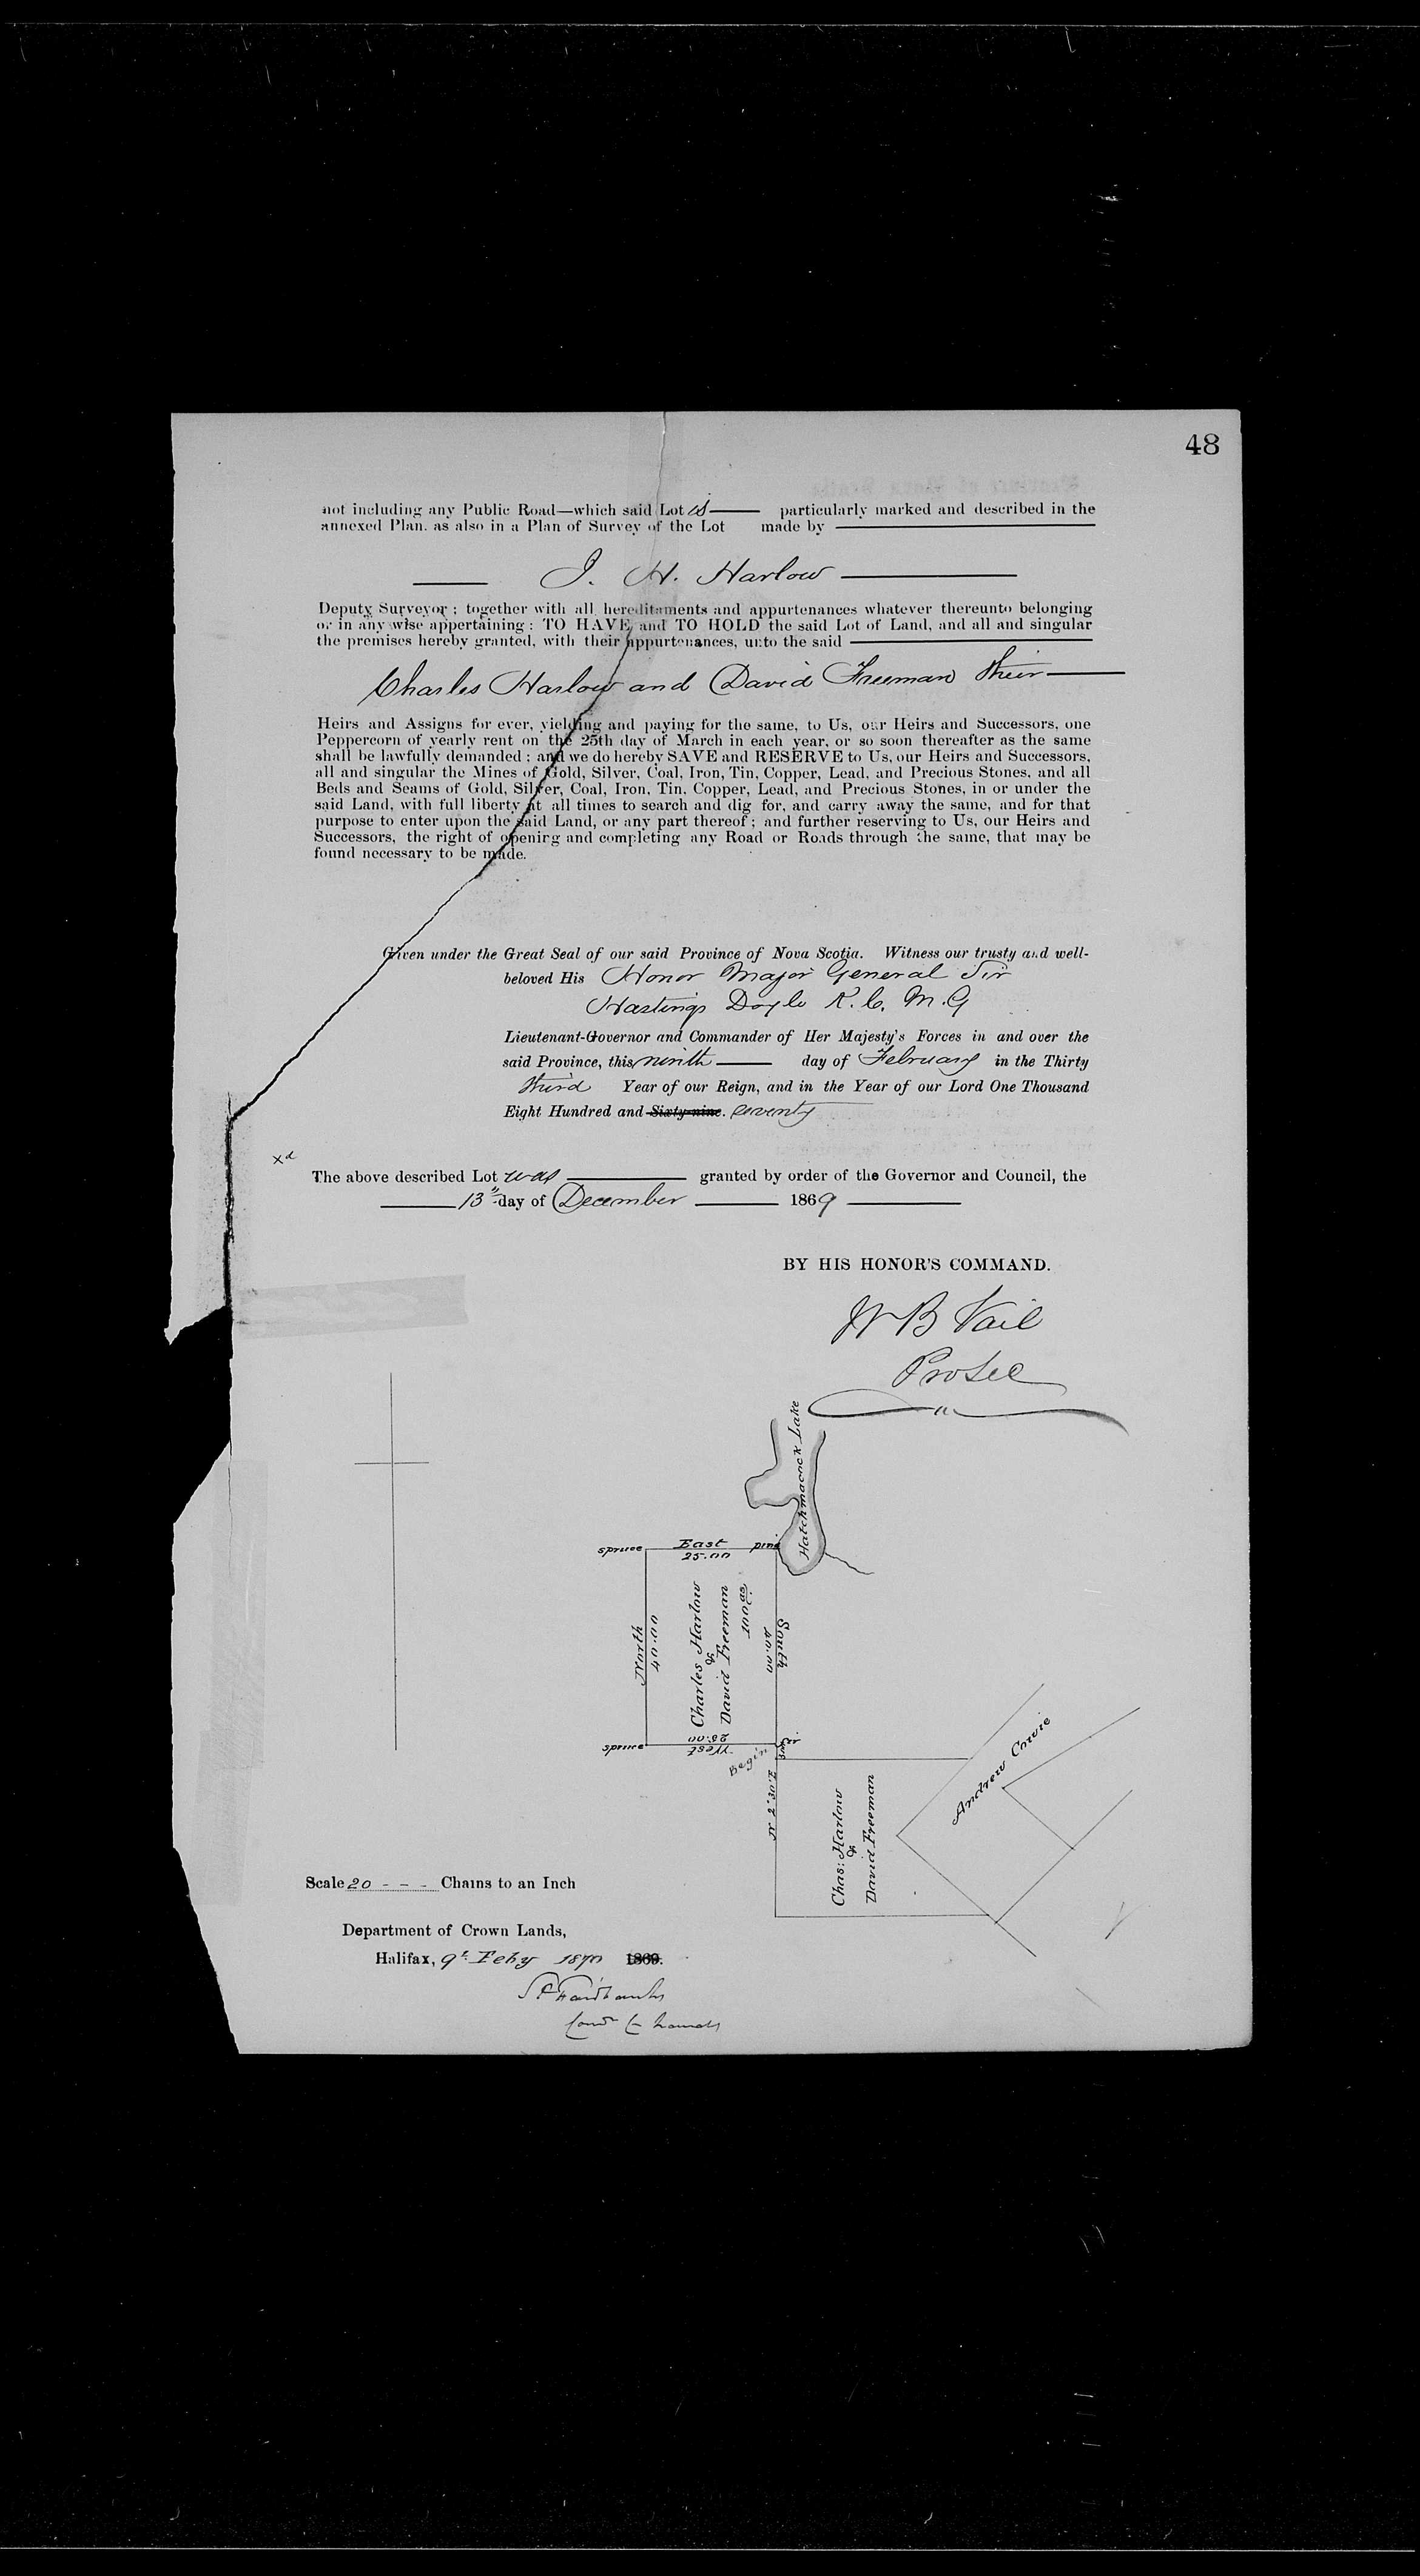 48
not including any Public Road—which said Lot is particularly marked and described in the
annexed Plan. as also in a Plan of Survey of the Lot made by
J. H. Harlow
Deputy Surveyor; together with all hereditaments and appurtenances whatever thereunto belonging
or in any wise appertaining: TO HAVE and TO HOLD the said Lot of Land, and all and singular
the premises hereby granted, with their appurtenances, unto the said
Charles Harlow and David Freeman their
Heirs and Assigns for ever, yielding and paying for the same, to Us, our Heirs and Successors, one
Peppercorn of yearly rent on the 25th day of March in each year, or so soon thereafter as the same
shall be lawfully demanded; and we do hereby SAVE and RESERVE to Us, our Heirs and Successors,
all and singular the Mines of Gold, Silver, Coal, Iron, Tin, Copper, Lead, and Precious Stones, and all
Beds and Seams of Gold, Silver, Coal, Iron, Tin, Copper, Lead, and Precious Stones, in or under the
said Land, with full liberty at all times to search and dig for, and carry away the same, and for that
purpose to enter upon the said Land, or any part thereof; and further reserving to Us, our Heirs and
Successors, the right of opening and completing any Road or Roads through the same, that may be
found necessary to be made.
Given under the Great Seal of our said Province of Nova Scotia. Witness our trusty and well-
beloved His Honor Major General Sir
Hastings Doyle K. C. M. G
Lieutenant-Governor and Commander of Her Majesty's Forces in and over the
said Province, this ninth day of February in the Thirty
third Year of our Reign, and in the Year of our Lord One Thousand
Eight Hundred and Sixty-nine. seventy
xd
The above described Lot was granted by order of the Governor and Council, the
13th day of December 1869
BY HIS HONOR'S COMMAND.
W B Vail
Pro Sec
Hatchmacock Lake
spruce East pine
25.00
North
40.00
Charles Harlow
&
David Freeman
100 as
South
40.00
25.00
West
spruce
Begin
N 2° 30' E
Chas: Harlow
&
David Freeman
Andrew Cowie
Scale 20 - - - Chains to an Inch
Department of Crown Lands,
Halifax, 9th Feby 1870 1869.
S P Fairbanks
Comr Cr Lands